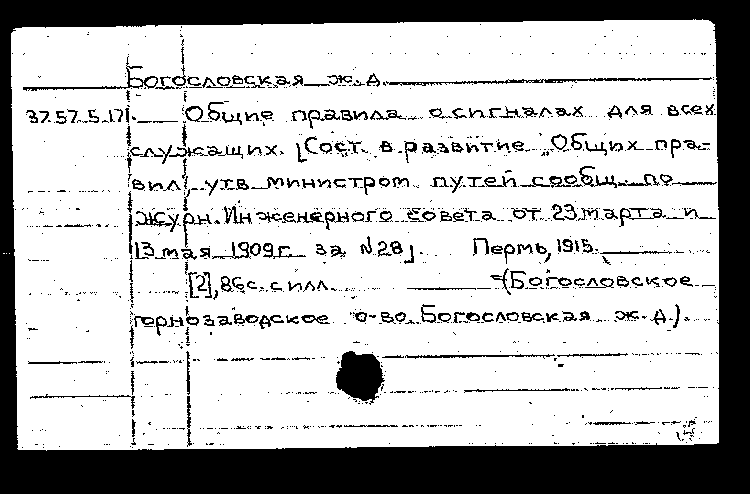 Богословская ж. д.
37.57.5.171. Общие правила о сигналах для всех
служащих. [Сост. в развитие „Общих пра-
вил, утв. министром путей сообщ. по
журн. Инженерного совета от 23 марта и
13 мая 1909 г. за N28]. Пермь, 1915.
[2], 86 с. с илл. =(Богословское
горнозаводское о-во. Богословская ж. д.).